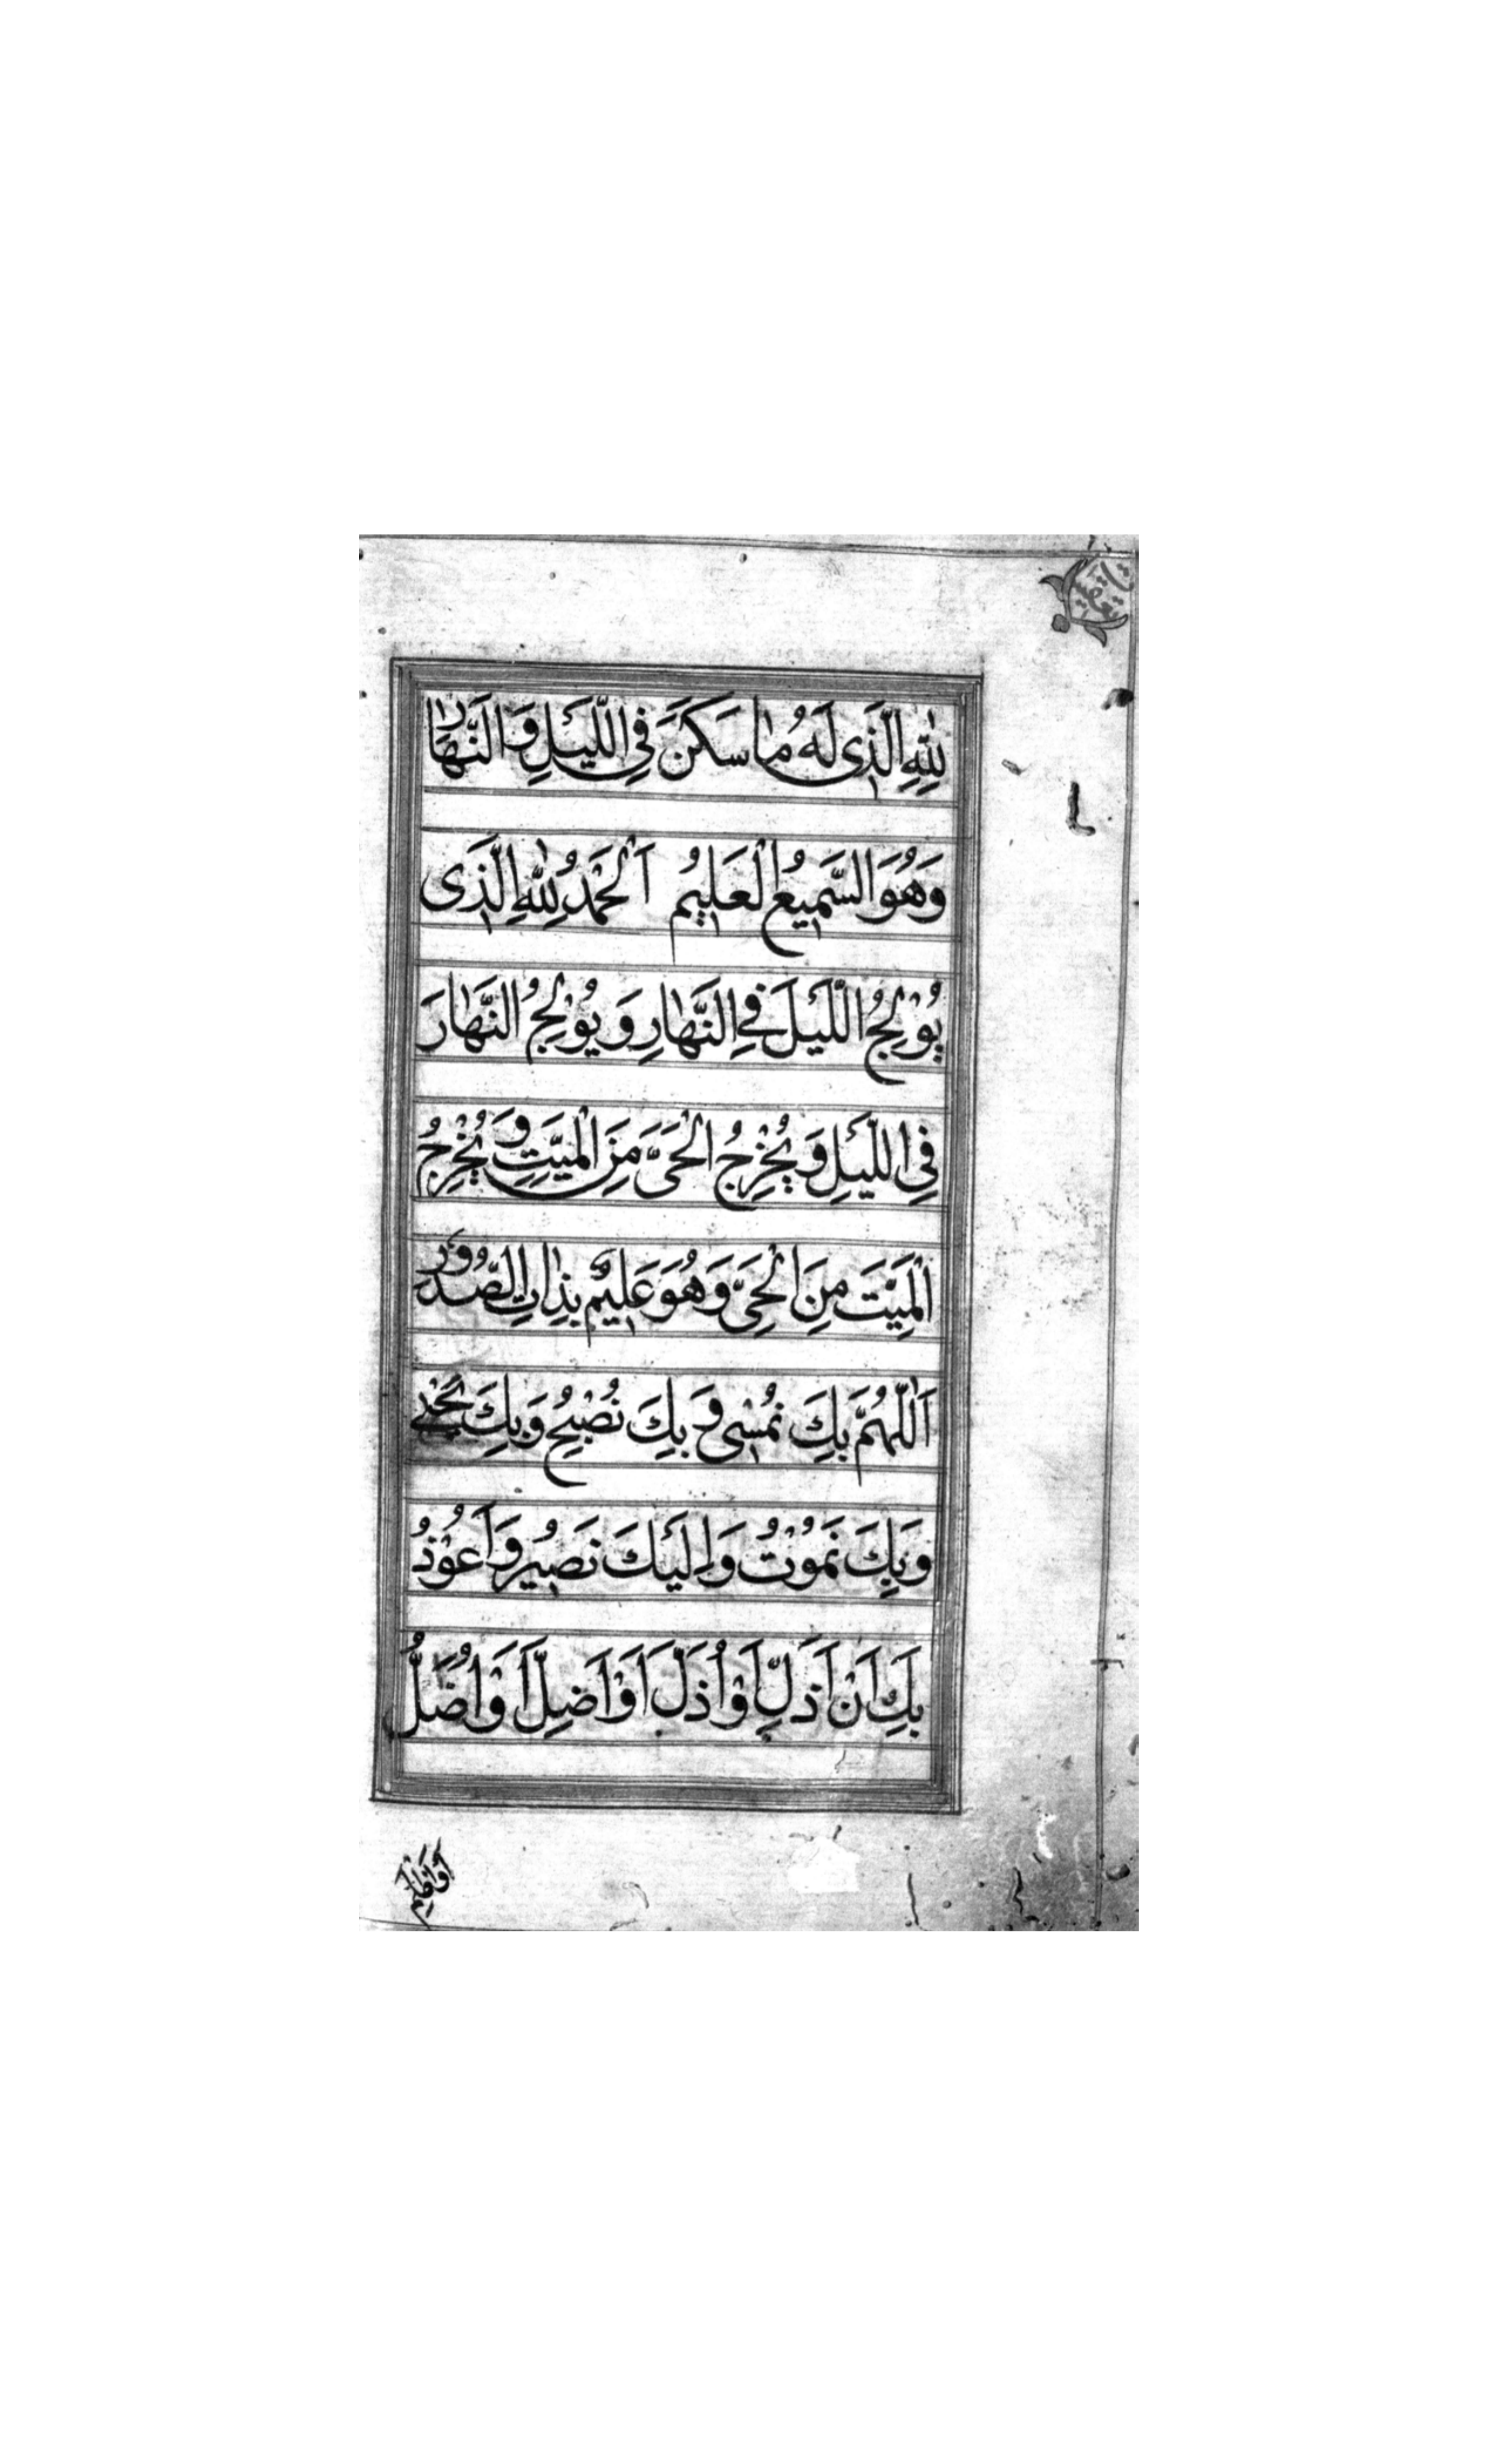 لِلّٰهِ الَّذِى لَهُ مٰا سَكَنَ فِى اللَّيْلِ وَالنَّهٰارِ
وَهُوَ السَّمِيعُ الْعَلِيمُ اَلْحَمْدُ لِلّٰهِ الَّذِى
يُوْلِجُ اللَّيْلَ فِى النَّهٰارِ وَيُوْلِجُ النَّهٰارَ
فِى اللَّيْلِ وَيُخْرِجُ الْحَىَّ مِنَ الْمَيِّتِ وَيُخْرِجُ
الْمَيِّتَ مِنَ الْحَىِّ وَهُوَ عَلِيمٌ بِذٰاتِ الصُّدُوْرِ
اَللّٰهُمَّ بِكَ نُمْسِى وَبِكَ نُصْبِحُ وَبِكَ نَحْيٰى
وَبِكَ نَمُوْتُ وَاِلَيْكَ نَصِيرُ وَاَعُوْذُ
بِكَ اَنْ اَذِلَّ اَوْ اُذَلَّ اَوْ اَضِلَّ اَوْ اُضَلَّ
اَوْ اَظْلِمَ